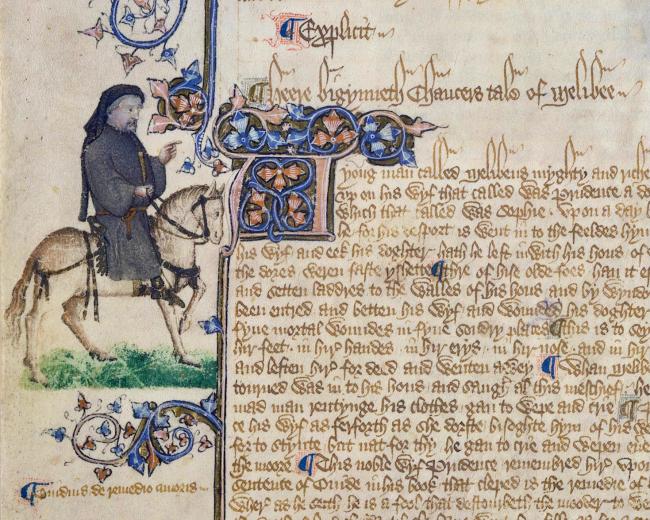 Explicit
Heere bigynneth Chaucers tale of Melibee
A yong man called Melibeus myghty and riche
vp on his wyf that called was Prudence a do
which that called was Sophie. Vpon a day b
he for his desport is went in to the feeldes hym
his wyf and eek his doghter hath he left inwith his hous of
the dores weren faste yshette thre of hise olde foes han it es
and setten laddres to the walles of his hous and by wyndo
been entred and betten his wyf and wounded his doghter
fyue mortal woundes in fyue sondry places this is to sey
hir feet. in hir handes in hir erys. in hir nose. and in hir
and leften hir for deed and wenten awey Whan Melibe
tourned was in to his hous and saugh al this meschief. he
mad man rentynge his clothes. gan to wepe and crie
ce his wyf as ferforth as she dorste bisoghte hym of his
for to stynte but nat for thy he gan to crie and wepen euere
the moore This noble wyf Prudence remembred hir vpon
sentence of Ouide in his book that cleped is the remedie of l
wher as he seith he is a fool that destourbeth the mooder to we
Ouidius de remedio amoris